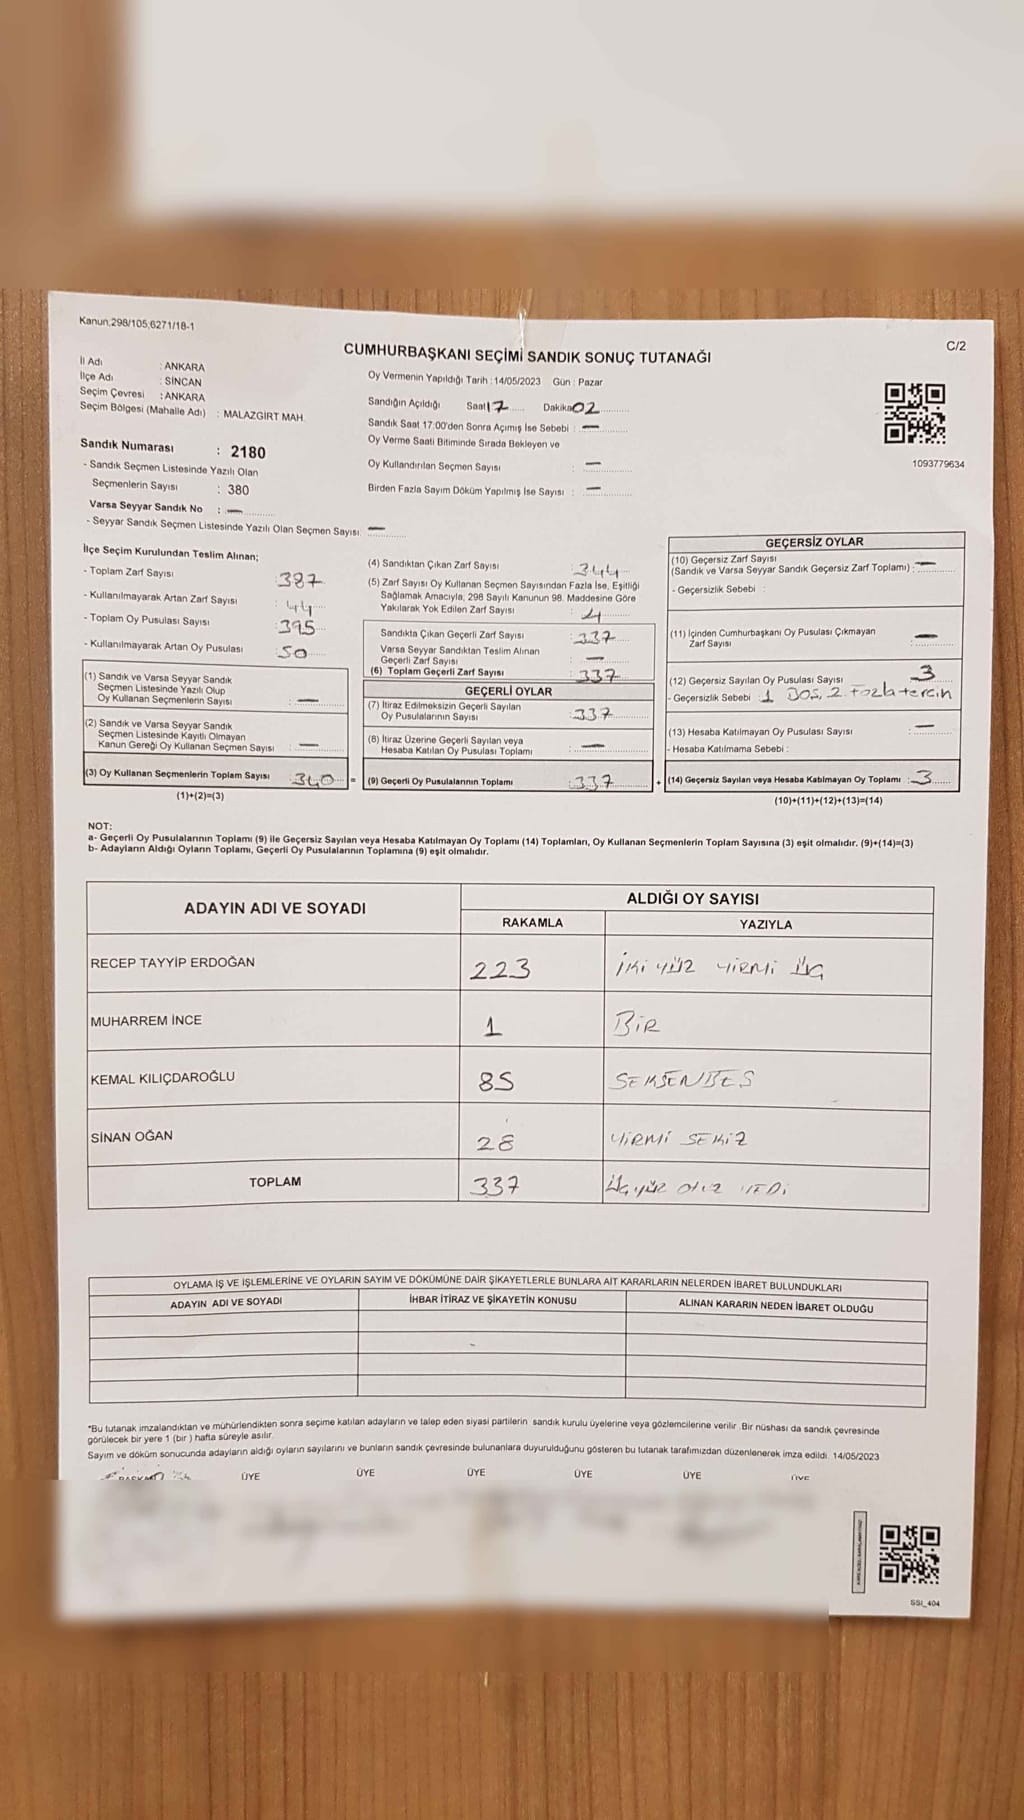 Kanun:298/105,6271/18-1
C/2
CUMHURBAŞKANI SEÇİMİ SANDIK SONUÇ TUTANAĞI
İl Adı : ANKARA
İlçe Adı : SİNCAN
Seçim Çevresi : ANKARA
Seçim Bölgesi (Mahalle Adı) : MALAZGİRT MAH.
Oy Vermenin Yapıldığı Tarih : 14/05/2023 Gün : Pazar
Sandığın Açıldığı Saat 17 Dakika 02
Sandık Saat 17:00'den Sonra Açımış İse Sebebi : —
Oy Verme Saati Bitiminde Sırada Bekleyen ve
Oy Kullandırılan Seçmen Sayısı : —
Birden Fazla Sayım Döküm Yapılmış İse Sayısı : —
1093779634
Sandık Numarası : 2180
- Sandık Seçmen Listesinde Yazılı Olan
Seçmenlerin Sayısı : 380
Varsa Seyyar Sandık No : —
- Seyyar Sandık Seçmen Listesinde Yazılı Olan Seçmen Sayısı: —
İlçe Seçim Kurulundan Teslim Alınan;
- Toplam Zarf Sayısı : 387
- Kullanılmayarak Artan Zarf Sayısı : 44
- Toplam Oy Pusulası Sayısı : 395
- Kullanılmayarak Artan Oy Pusulası : 50
(1) Sandık ve Varsa Seyyar Sandık
Seçmen Listesinde Yazılı Olup
Oy Kullanan Seçmenlerin Sayısı : —
(2) Sandık ve Varsa Seyyar Sandık
Seçmen Listesinde Kayıtlı Olmayan
Kanun Gereği Oy Kullanan Seçmen Sayısı : —
(3) Oy Kullanan Seçmenlerin Toplam Sayısı : 340 =
(1)+(2)=(3)
(4) Sandıktan Çıkan Zarf Sayısı : 344
(5) Zarf Sayısı Oy Kullanan Seçmen Sayısından Fazla İse, Eşitliği
Sağlamak Amacıyla, 298 Sayılı Kanunun 98. Maddesine Göre
Yakılarak Yok Edilen Zarf Sayısı : 4
Sandıkta Çıkan Geçerli Zarf Sayısı : 337
Varsa Seyyar Sandıktan Teslim Alınan
Geçerli Zarf Sayısı : —
(6) Toplam Geçerli Zarf Sayısı : 337
GEÇERLİ OYLAR
(7) İtiraz Edilmeksizin Geçerli Sayılan
Oy Pusulalarının Sayısı : 337
(8) İtiraz Üzerine Geçerli Sayılan veya
Hesaba Katılan Oy Pusulası Toplamı : —
(9) Geçerli Oy Pusulalarının Toplamı : 337 +
GEÇERSİZ OYLAR
(10) Geçersiz Zarf Sayısı
(Sandık ve Varsa Seyyar Sandık Geçersiz Zarf Toplamı) : —
- Geçersizlik Sebebi :
(11) İçinden Cumhurbaşkanı Oy Pusulası Çıkmayan
Zarf Sayısı : —
(12) Geçersiz Sayılan Oy Pusulası Sayısı : 3
- Geçersizlik Sebebi : 1 Boş, 2 Fazla tercih
(13) Hesaba Katılmayan Oy Pusulası Sayısı : —
- Hesaba Katılmama Sebebi :
(14) Geçersiz Sayılan veya Hesaba Katılmayan Oy Toplamı : 3
(10)+(11)+(12)+(13)=(14)
NOT:
a- Geçerli Oy Pusulalarının Toplamı (9) ile Geçersiz Sayılan veya Hesaba Katılmayan Oy Toplamı (14) Toplamları, Oy Kullanan Seçmenlerin Toplam Sayısına (3) eşit olmalıdır. (9)+(14)=(3)
b- Adayların Aldığı Oyların Toplamı, Geçerli Oy Pusulalarının Toplamına (9) eşit olmalıdır.
ADAYIN ADI VE SOYADI ALDIĞI OY SAYISI
RAKAMLA YAZIYLA
RECEP TAYYİP ERDOĞAN 223 İKİ YÜZ YİRMİ ÜÇ
MUHARREM İNCE 1 BİR
KEMAL KILIÇDAROĞLU 85 SEKSENBEŞ
SİNAN OĞAN 28 YİRMİ SEKİZ
TOPLAM 337 ÜÇ YÜZ OTUZ YEDİ
OYLAMA İŞ VE İŞLEMLERİNE VE OYLARIN SAYIM VE DÖKÜMÜNE DAİR ŞİKAYETLERLE BUNLARA AİT KARARLARIN NELERDEN İBARET BULUNDUKLARI
ADAYIN ADI VE SOYADI İHBAR İTİRAZ VE ŞİKAYETİN KONUSU ALINAN KARARIN NEDEN İBARET OLDUĞU
*Bu tutanak imzalandıktan ve mühürlendikten sonra seçime katılan adayların ve talep eden siyasi partilerin sandık kurulu üyelerine veya gözlemcilerine verilir. Bir nüshası da sandık çevresinde
görülecek bir yere 1 (bir ) hafta süreyle asılır.
Sayım ve döküm sonucunda adayların aldığı oyların sayılarını ve bunların sandık çevresinde bulunanlara duyurulduğunu gösteren bu tutanak tarafımızdan düzenlenerek imza edildi. 14/05/2023
BAŞKAN ÜYE ÜYE ÜYE ÜYE ÜYE ÜYE
SSI_404